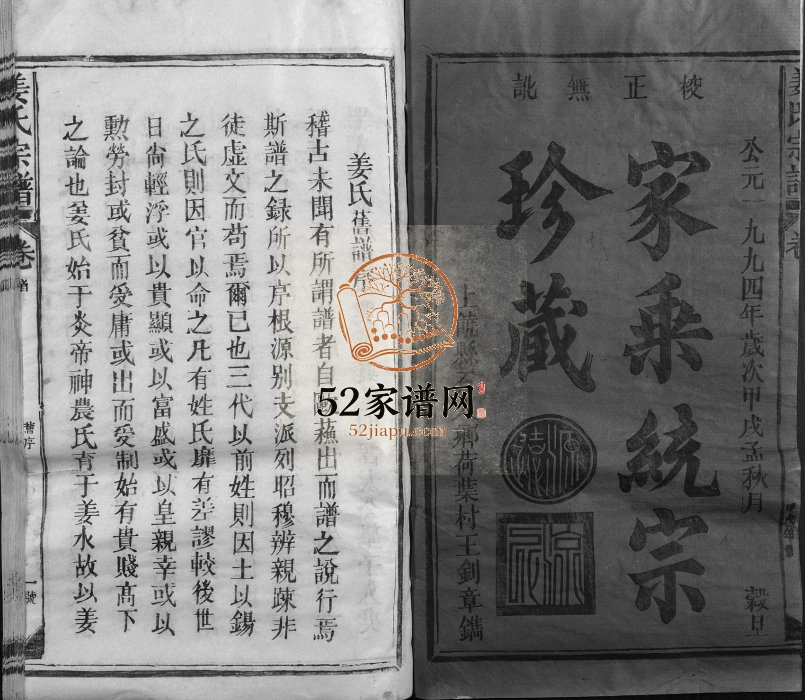 校正無訛
公元一九九四年歲次甲戌孟秋月
穀旦
家乗統宗
珍藏
鄉荷葉村王釗章鐫
姜氏宗譜
卷
姜氏舊譜序
稽古未聞有所謂譜者自蘇出而譜之說行焉
斯譜之録所以序根源别支派列昭穆辨親疎非
徒虚文而苟焉爾已也三代以前姓則因土以錫
之氏則因官以命之凡有姓氏靡有差謬較後世
日尙輕浮或以貴顯或以富盛或以皇親幸或以
勲勞封或貧而受庸或出而受制始有貴賤髙下
之論也姜氏始于炎帝神農氏育于姜水故以姜
姜氏宗譜
卷首
舊序
一號
52家谱网
52jiapu.com